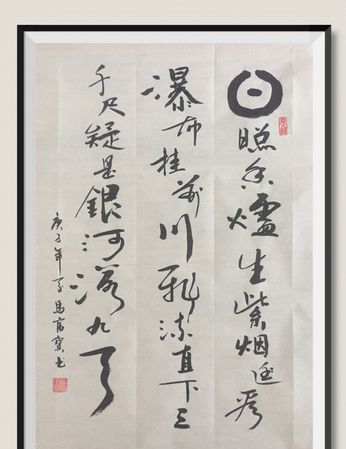 日照香爐生紫烟遥看
瀑布挂前川飛流直下三
千尺疑是銀河落九天
庚子年馬书